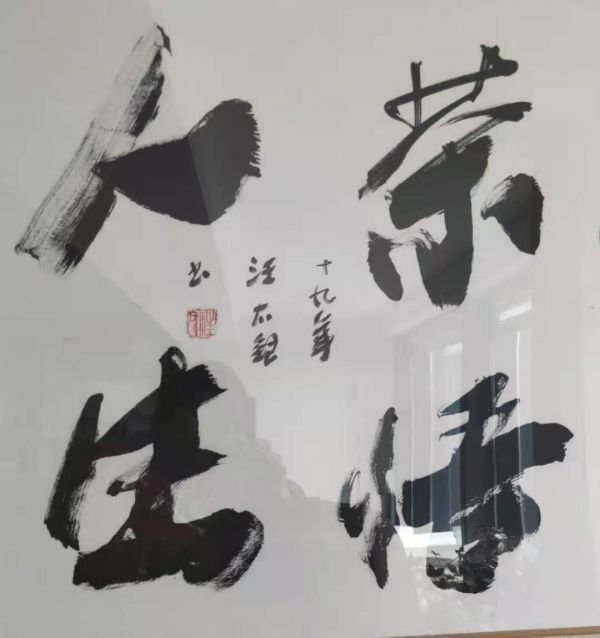 茶悟
人生
十九年
汪太银
书